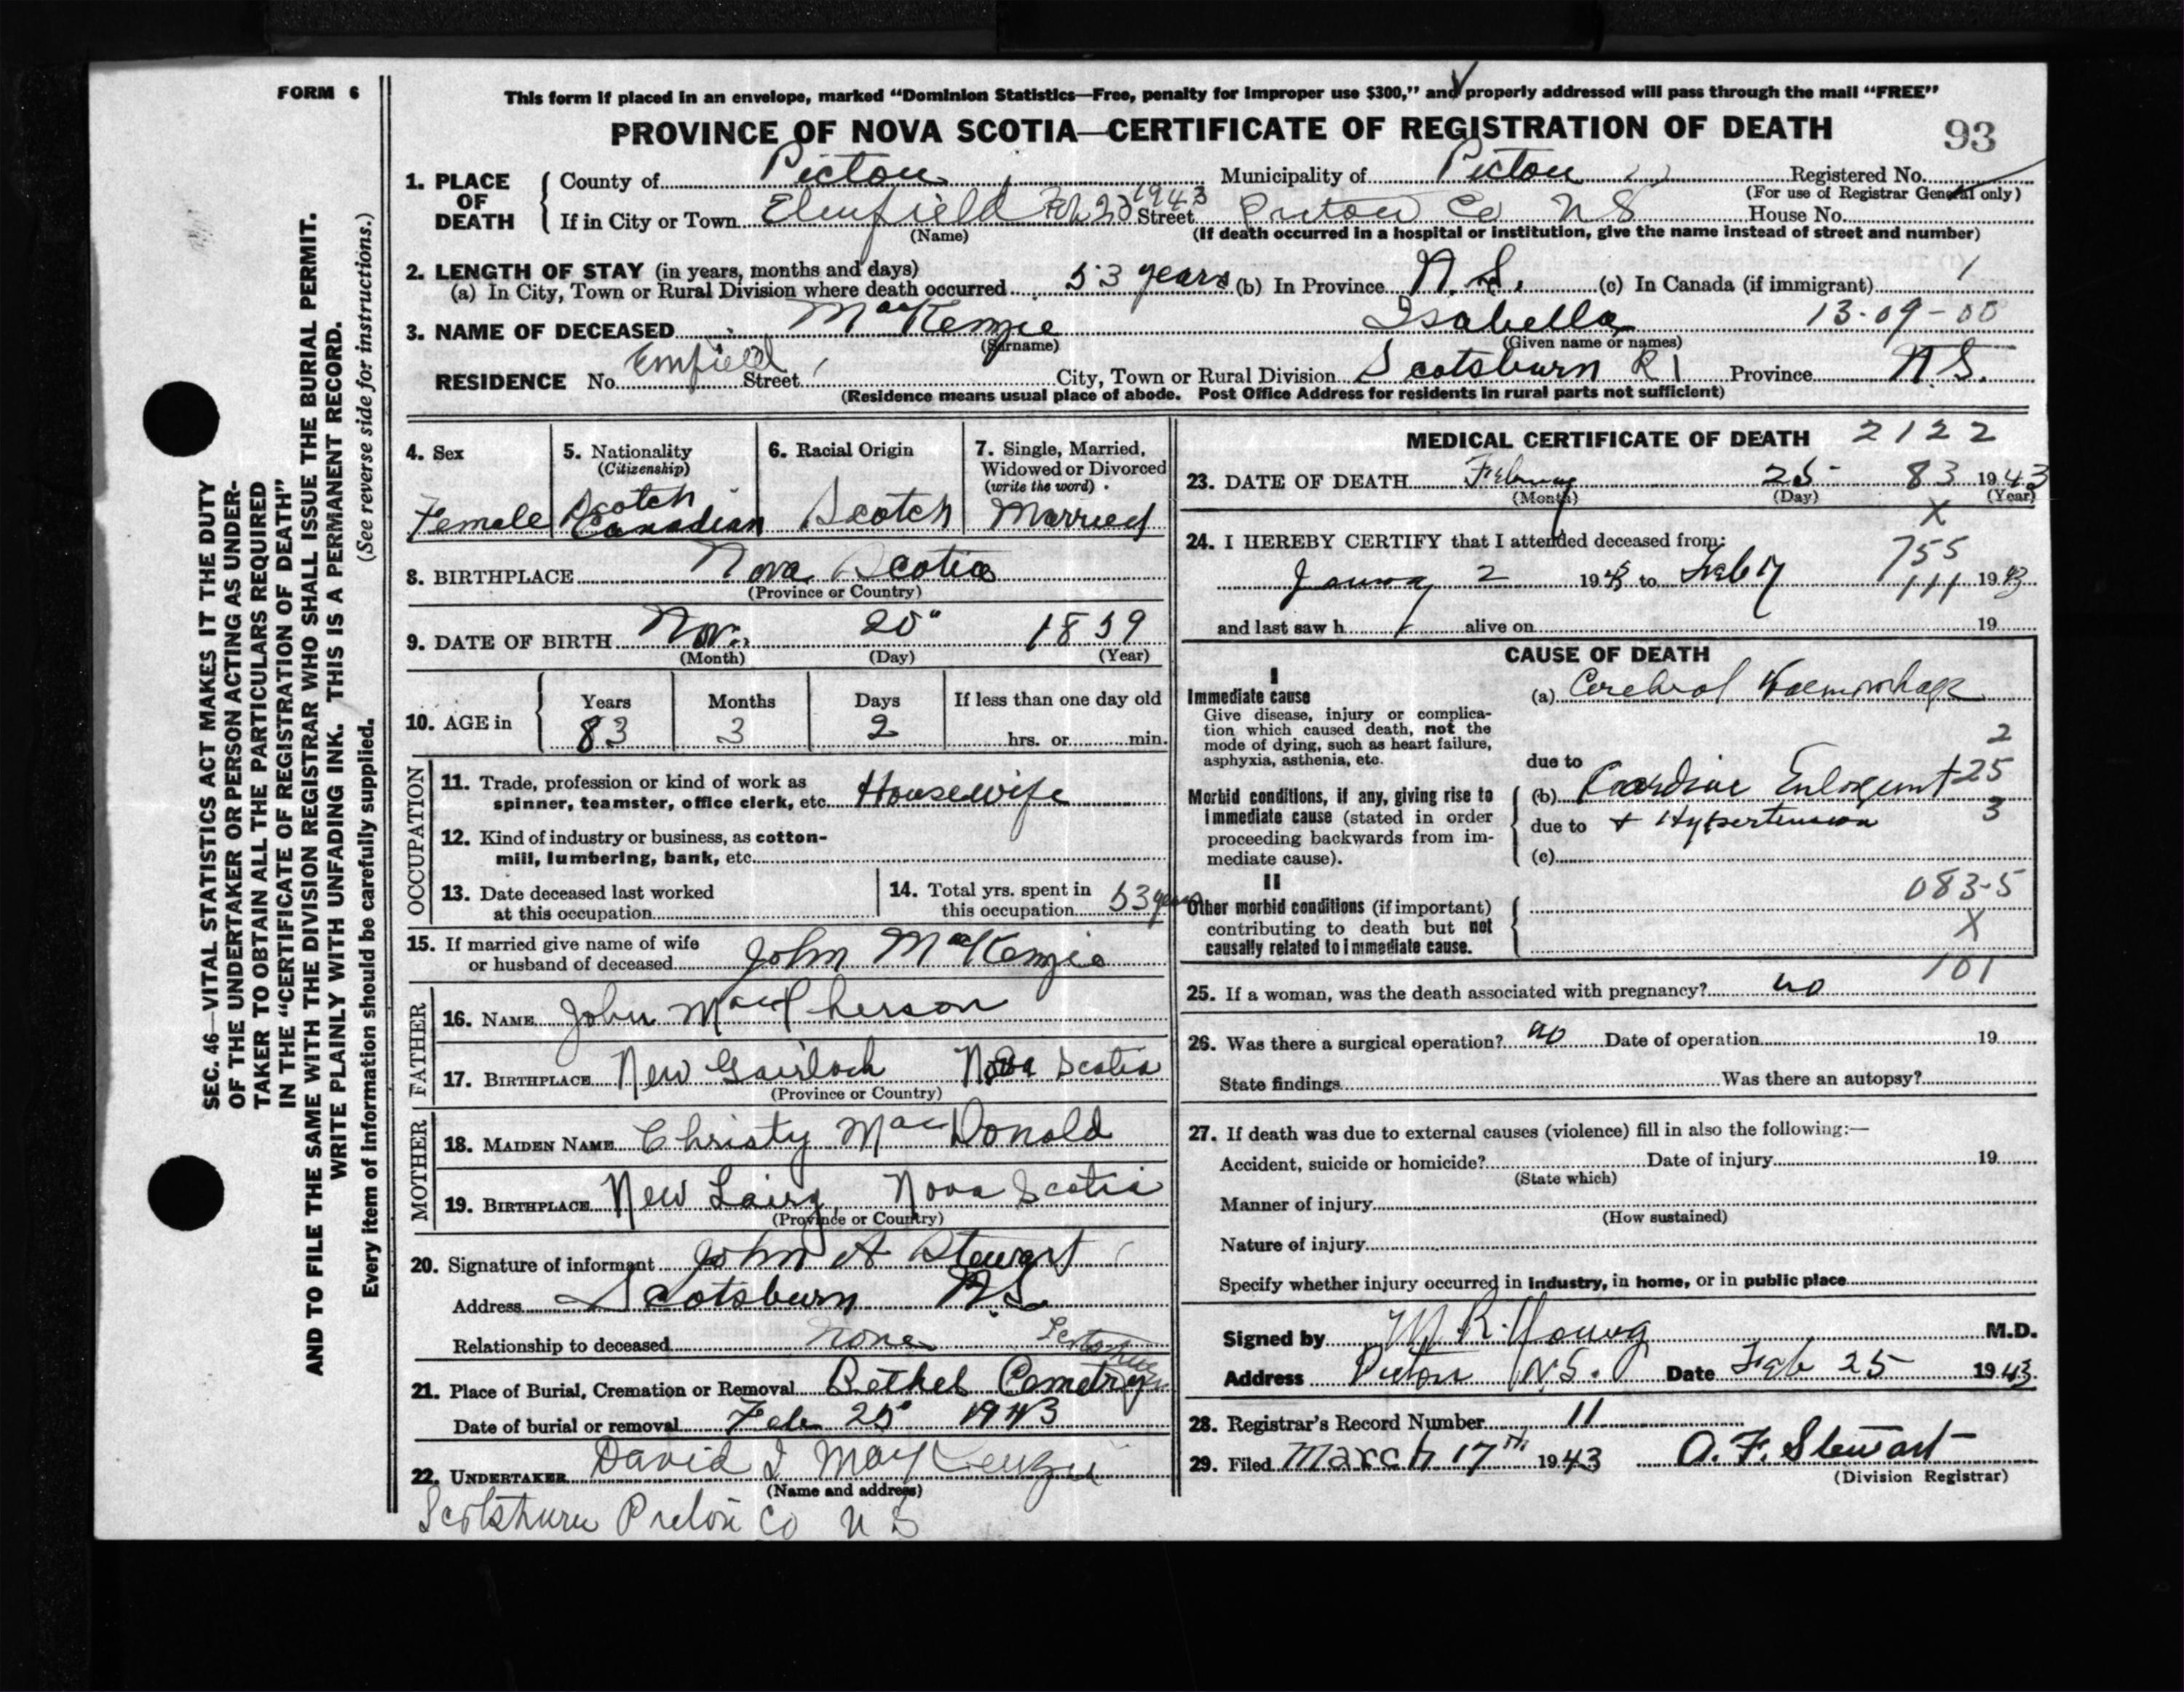 FORM 6
This form if placed in an envelope, marked "Dominion Statistics—Free, penalty for improper use $300," and properly addressed will pass through the mail "FREE"
PROVINCE OF NOVA SCOTIA—CERTIFICATE OF REGISTRATION OF DEATH 93
1. PLACE OF DEATH { County of Pictou Municipality of Pictou Registered No.
(For use of Registrar General only)
If in City or Town Elmfield Feb 23 1943 Street Pictou Co N S House No.
(Name) (If death occurred in a hospital or institution, give the name instead of street and number)
2. LENGTH OF STAY (in years, months and days)
(a) In City, Town or Rural Division where death occurred 53 years (b) In Province N.S. (c) In Canada (if immigrant)
3. NAME OF DECEASED MacKenzie Isabella 13-09-00
(Surname) (Given name or names)
RESIDENCE No. Emfield Street City, Town or Rural Division Scotsburn R 1 Province N.S.
(Residence means usual place of abode. Post Office Address for residents in rural parts not sufficient)
4. Sex Female
5. Nationality (Citizenship) Scotch Canadian
6. Racial Origin Scotch
7. Single, Married, Widowed or Divorced (write the word) Married
8. BIRTHPLACE Nova Scotia
(Province or Country)
9. DATE OF BIRTH Nov. 20" 1859
(Month) (Day) (Year)
10. AGE in { Years 83 Months 3 Days 2 If less than one day old hrs. or min.
OCCUPATION
11. Trade, profession or kind of work as spinner, teamster, office clerk, etc. Housewife
12. Kind of industry or business, as cotton-mill, lumbering, bank, etc.
13. Date deceased last worked at this occupation
14. Total yrs. spent in this occupation 53 years
15. If married give name of wife or husband of deceased John MacKenzie
FATHER
16. NAME John MacPherson
17. BIRTHPLACE New Gairloch Nova Scotia
(Province or Country)
MOTHER
18. MAIDEN NAME Christy MacDonald
19. BIRTHPLACE New Lairg Nova Scotia
(Province or Country)
20. Signature of informant John A Stewart
Address Scotsburn N.S.
Relationship to deceased none
21. Place of Burial, Cremation or Removal Bethel Cemetry
Date of burial or removal Feb 25" 1943
22. UNDERTAKER David I MacKenzie
(Name and address)
Scotsburn Pictou Co N S
MEDICAL CERTIFICATE OF DEATH 2122
23. DATE OF DEATH February 25 83 1943
(Month) (Day) (Year)
X
24. I HEREBY CERTIFY that I attended deceased from:
755
January 2 1943 to Feb 17 111 1943
and last saw h r alive on 19
CAUSE OF DEATH
I
Immediate cause
Give disease, injury or complication which caused death, not the mode of dying, such as heart failure, asphyxia, asthenia, etc.
(a) Cerebral Haemorrhage
2
due to
Morbid conditions, if any, giving rise to immediate cause (stated in order proceeding backwards from immediate cause).
(b) Cardiac Enlargement 25
due to + Hypertension 3
(c)
II
083-5
Other morbid conditions (if important) contributing to death but not causally related to immediate cause.
X
101
25. If a woman, was the death associated with pregnancy? no
26. Was there a surgical operation? no Date of operation 19
State findings Was there an autopsy?
27. If death was due to external causes (violence) fill in also the following:—
Accident, suicide or homicide? Date of injury 19
(State which)
Manner of injury
(How sustained)
Nature of injury
Specify whether injury occurred in industry, in home, or in public place
Signed by M R. Young M.D.
Address Pictou N.S. Date Feb 25 1943
28. Registrar's Record Number 11
29. Filed March 17th 1943 A. F. Stewart
(Division Registrar)
SEC. 46—VITAL STATISTICS ACT MAKES IT THE DUTY
OF THE UNDERTAKER OR PERSON ACTING AS UNDER-
TAKER TO OBTAIN ALL THE PARTICULARS REQUIRED
IN THE "CERTIFICATE OF REGISTRATION OF DEATH"
AND TO FILE THE SAME WITH THE DIVISION REGISTRAR WHO SHALL ISSUE THE BURIAL PERMIT.
WRITE PLAINLY WITH UNFADING INK. THIS IS A PERMANENT RECORD.
Every item of information should be carefully supplied. (See reverse side for instructions.)